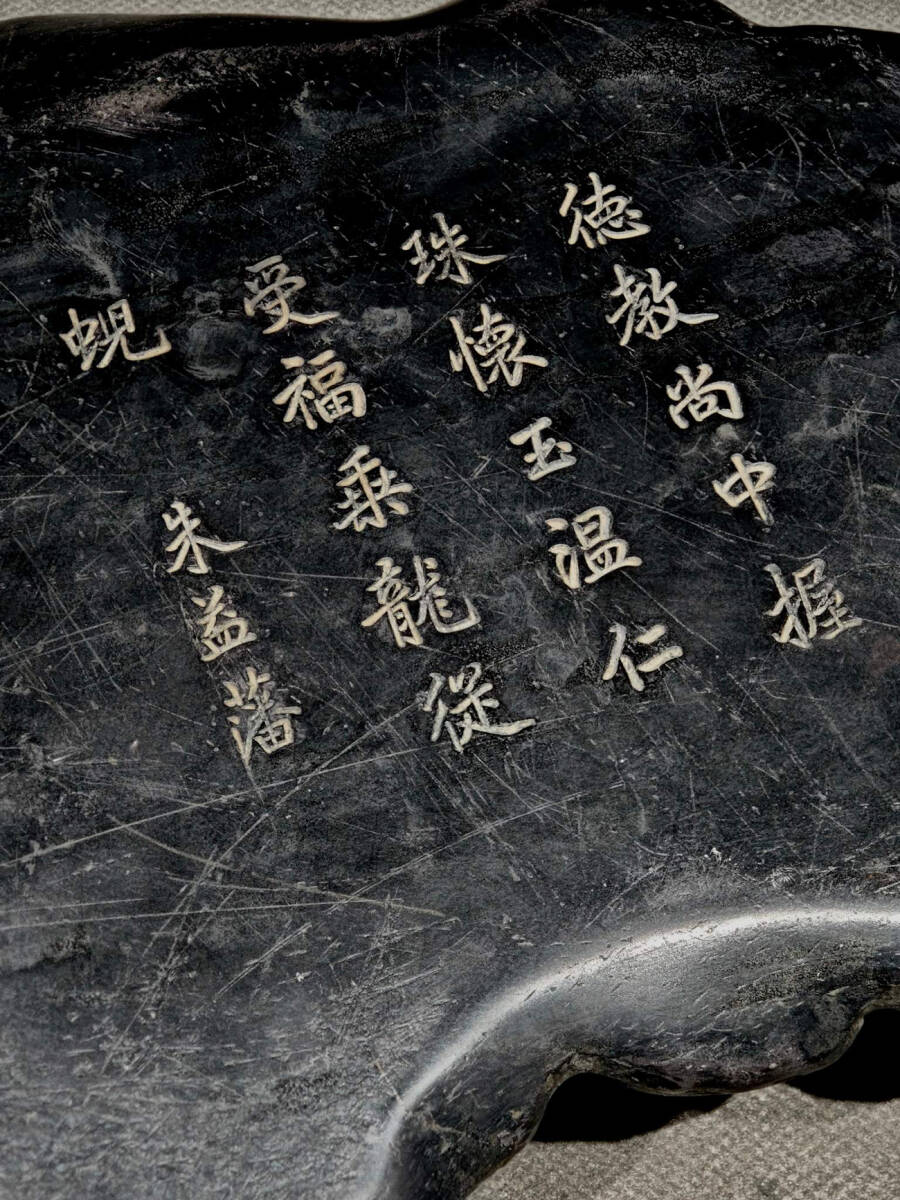 德教尚中握
珠懷玉温仁
受福乘龍從
蜺
朱益藩